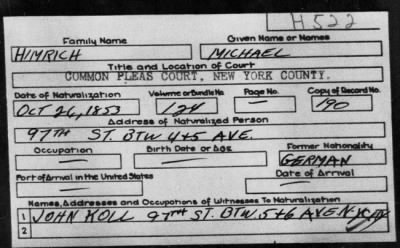 H522
Family Name Given Name or Names
HIMRICH MICHAEL
Title and Location of Court
COMMON PLEAS COURT, NEW YORK COUNTY.
Date of Naturalization Volume or Bundle No. Page No. Copy of Record No.
OCT 26, 1853 124 — 190
Address of Naturalized Person
97TH ST. BTW 4+5 AVE.
Occupation Birth Date or Age Former Nationality
— — GERMAN
Port of Arrival in the United States Date of Arrival
— —
Names, Addresses and Occupations of Witnesses To Naturalization
1 JOHN KOLL 97TH ST. BTW. 5+6 AVE N.Y.
2